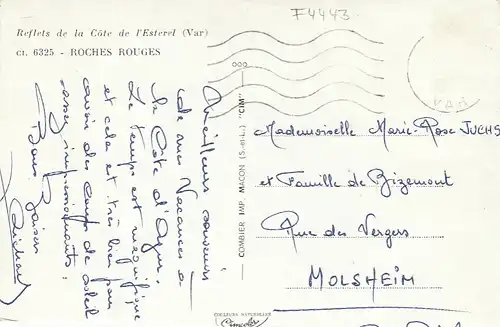 F4443
Reflets de la Côte de l'Esterel (Var)
Ct. 6325 - ROCHES ROUGES
Meilleurs souvenirs
de mes Vacances à
la Côte d'Azur.
Le temps est magnifique
et cela est très bien pour
avoir des coups de soleil
assez impressionnants.
Bons Baisers
COMBIER IMP. MACON (S.-et-L.) "CIM"
VAR
Mademoiselle Marie-Rose JUCHS
et Famille de Bizemont
Rue des Vergers
MOLSHEIM
COULEURS NATURELLES
Cimcolor